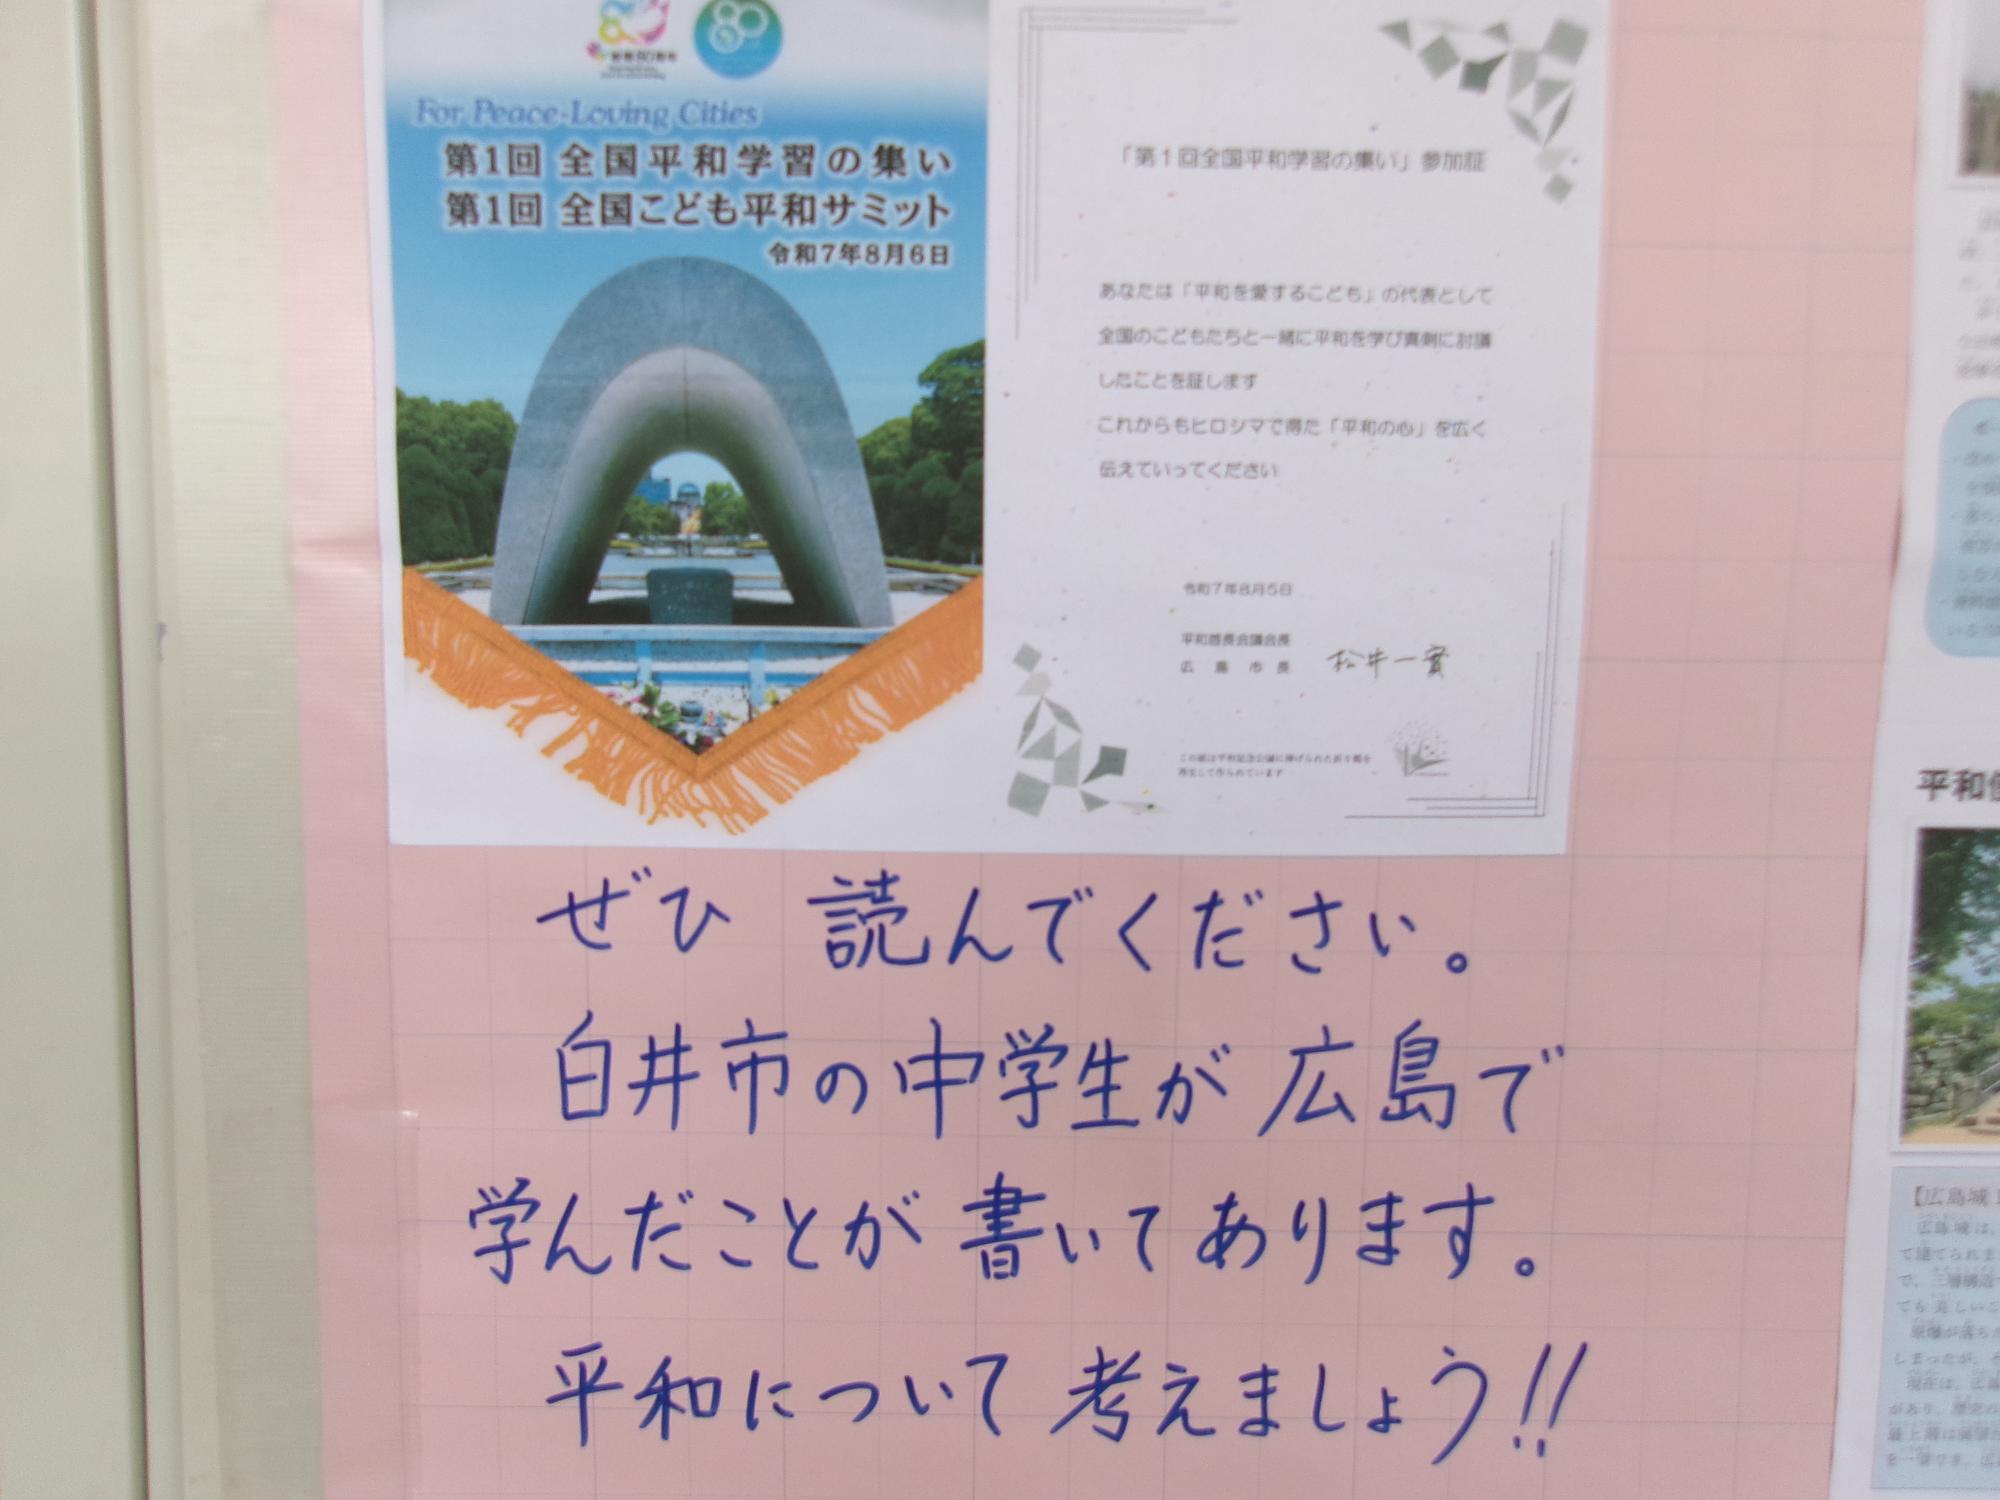 被爆80周年
For Peace-Loving Cities
第1回 全国平和学習の集い
第1回 全国こども平和サミット
令和7年8月6日
「第1回全国平和学習の集い」参加証
あなたは「平和を愛するこども」の代表として
全国のこどもたちと一緒に平和を学び真剣に討議
したことを証します
これからもヒロシマで得た「平和の心」を広く
伝えていってください
令和7年8月5日
平和首長会議会長
広島市長 松井一實
この紙は平和記念公園に捧げられた折り鶴を
再生して作られています
ぜひ 読んでください。
白井市の中学生が広島で
学んだことが書いてあります。
平和について考えましょう!!
平和
【広島城
広島城は、
て建てられま
で、三層構造
ても美しいこ
原爆が落ちた
しまったが、そ
現在は、広島
があり、歴史の
最上階は展望